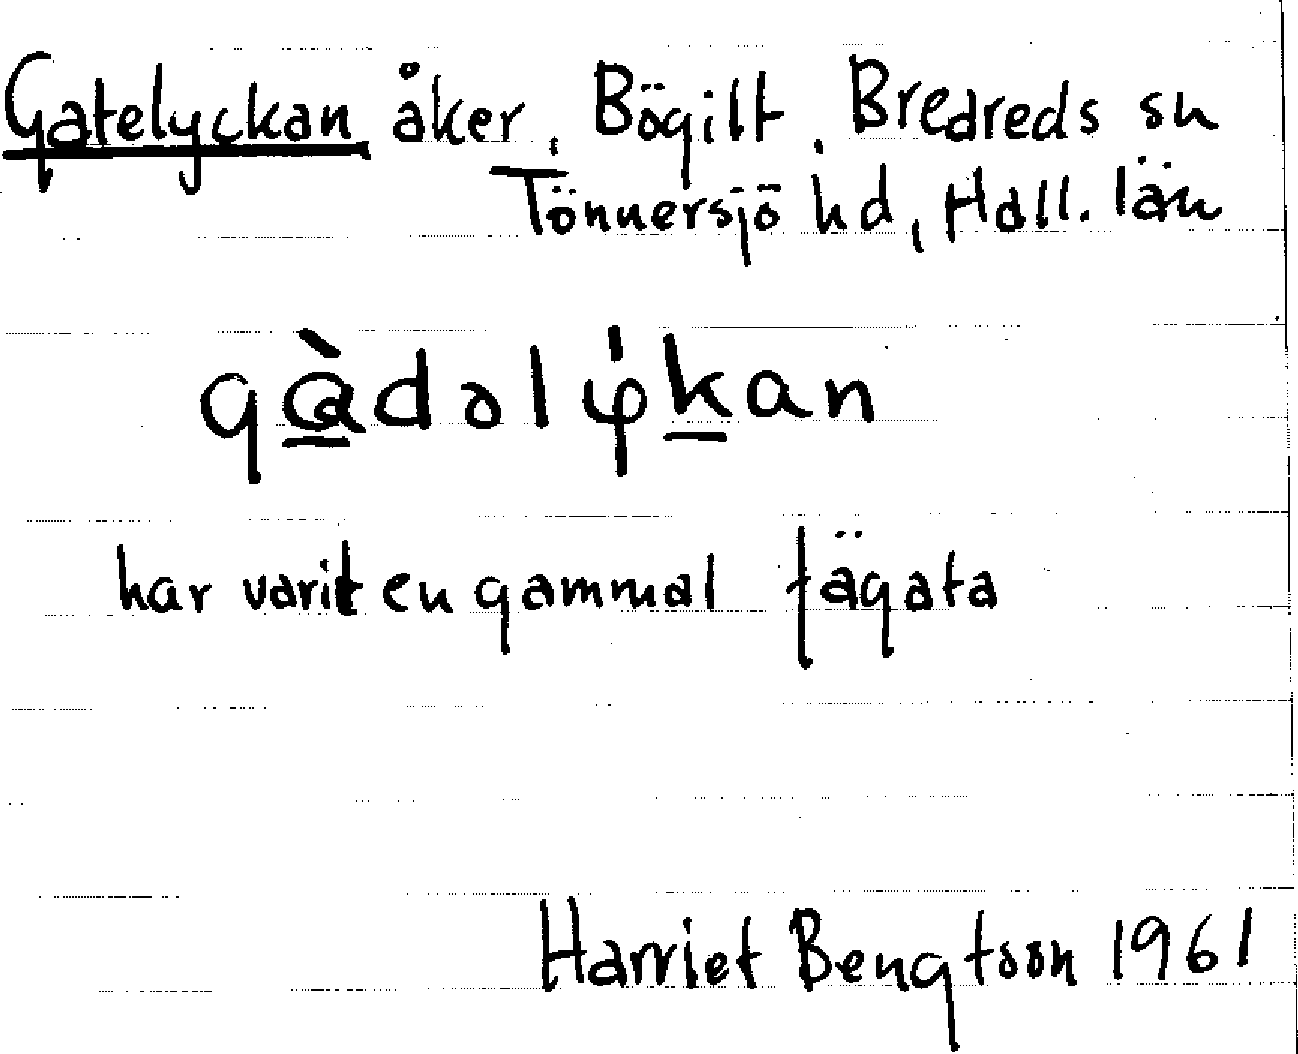 Gatelyckan åker, Bögilt, Bredreds sn
Tönnersjö hd, Hall. län
gɑ̀dəlýkan
har varit en gammal fägata
Harriet Bengtson 1961